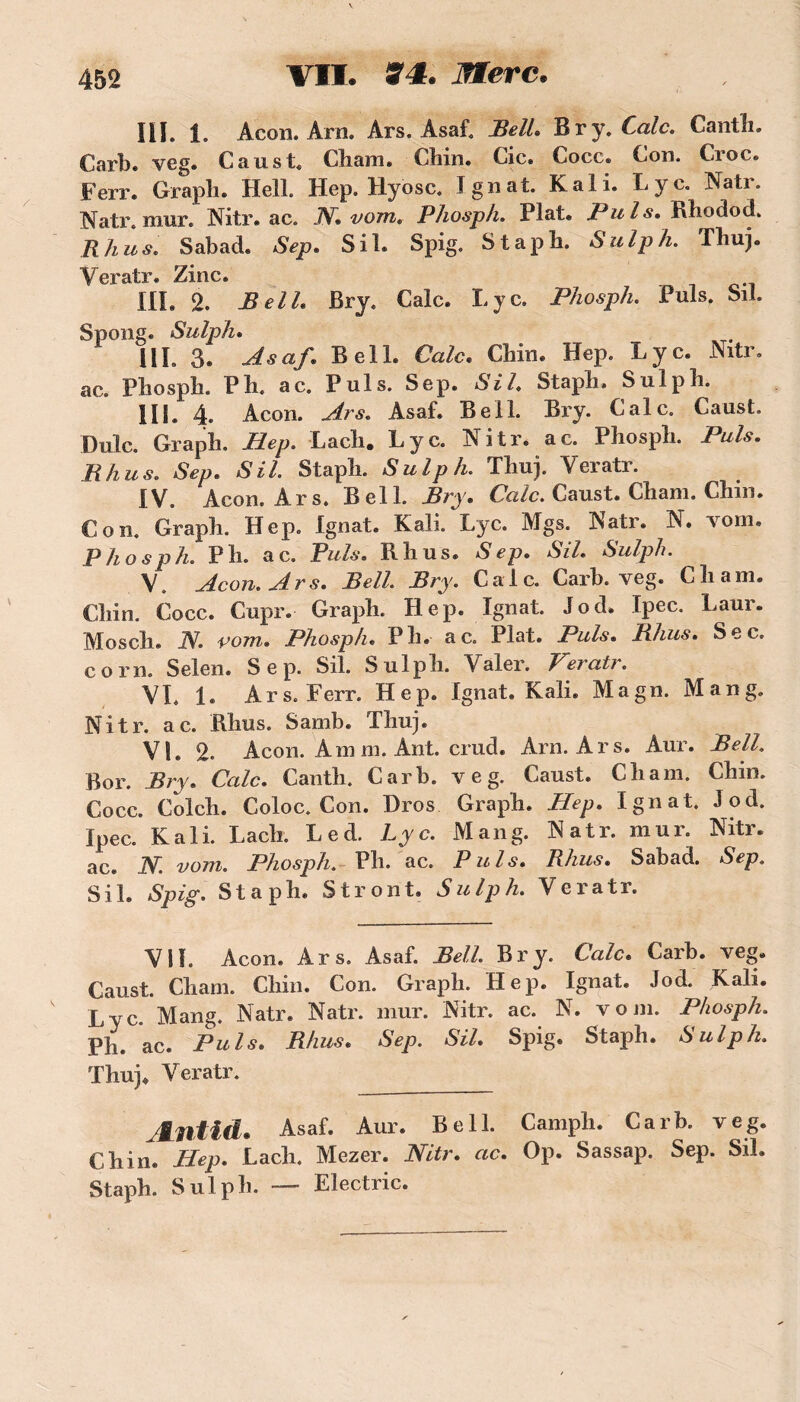 452 VII. 74. Merc.
III. 1. Acon. Arn. Ars. Asaf. Bell. Bry. Calc. Canth.
Carb. veg. Caust. Cham. Chin. Cic. Cocc. Con. Croc.
Ferr. Graph. Hell. Hep. Hyosc. Ignat. Kali. Lyc. Natr.
Natr. mur. Nitr. ac. N. vom. Phosph. Plat. Puls. Rhodod.
Rhus. Sabad. Sep. Sil. Spig. Staph. Sulph. Thuj.
Veratr. Zinc.
III. 2. Bell. Bry. Calc. Lyc. Phosph. Puls. Sil.
Spong. Sulph.
III. 3. Asaf. Bell. Calc. Chin. Hep. Lyc. Nitr.
ac. Phosph. Ph. ac. Puls. Sep. Sil. Staph. Sulph.
III. 4. Acon. Ars. Asaf. Bell. Bry. Calc. Caust.
Dulc. Graph. Hep. Lach. Lyc. Nitr. ac. Phosph. Puls.
Rhus. Sep. Sil. Staph. Sulph. Thuj. Veratr.
IV. Acon. Ars. Bell. Bry. Calc. Caust. Cham. Chin.
Con. Graph. Hep. Ignat. Kali. Lyc. Mgs. Natr. N. vom.
Phosph. Ph. ac. Puls. Rhus. Sep. Sil. Sulph.
V. Acon. Ars. Bell. Bry. Calc. Carb. veg. Cham.
Chin. Cocc. Cupr. Graph. Hep. Ignat. Jod. Ipec. Laur.
Mosch. N. vom. Phosph. Ph. ac. Plat. Puls. Rhus. Sec.
corn. Selen. Sep. Sil. Sulph. Valer. Veratr.
VI. 1. Ars. Ferr. Hep. Ignat. Kali. Magn. Mang.
Nitr. ac. Rhus. Samb. Thuj.
VI. 2. Acon. Amm. Ant. crud. Arn. Ars. Aur. Bell.
Bor. Bry. Calc. Canth. Carb. veg. Caust. Cham. Chin.
Cocc. Colch. Coloc. Con. Dros Graph. Hep. Ignat. Jod.
Ipec. Kali. Lach. Led. Lyc. Mang. Natr. mur. Nitr.
ac. N. vom. Phosph. Ph. ac. Puls. Rhus. Sabad. Sep.
Sil. Spig. Staph. Stront. Sulph. Veratr.
VII. Acon. Ars. Asaf. Bell. Bry. Calc. Carb. veg.
Caust. Cham. Chin. Con. Graph. Hep. Ignat. Jod. Kali.
Lyc. Mang. Natr. Natr. mur. Nitr. ac. N. vom. Phosph.
Ph. ac. Puls. Rhus. Sep. Sil. Spig. Staph. Sulph.
Thuj. Veratr.
Antid. Asaf. Aur. Bell. Camph. Carb. veg.
Chin. Hep. Lach. Mezer. Nitr. ac. Op. Sassap. Sep. Sil.
Staph. Sulph. — Electric.